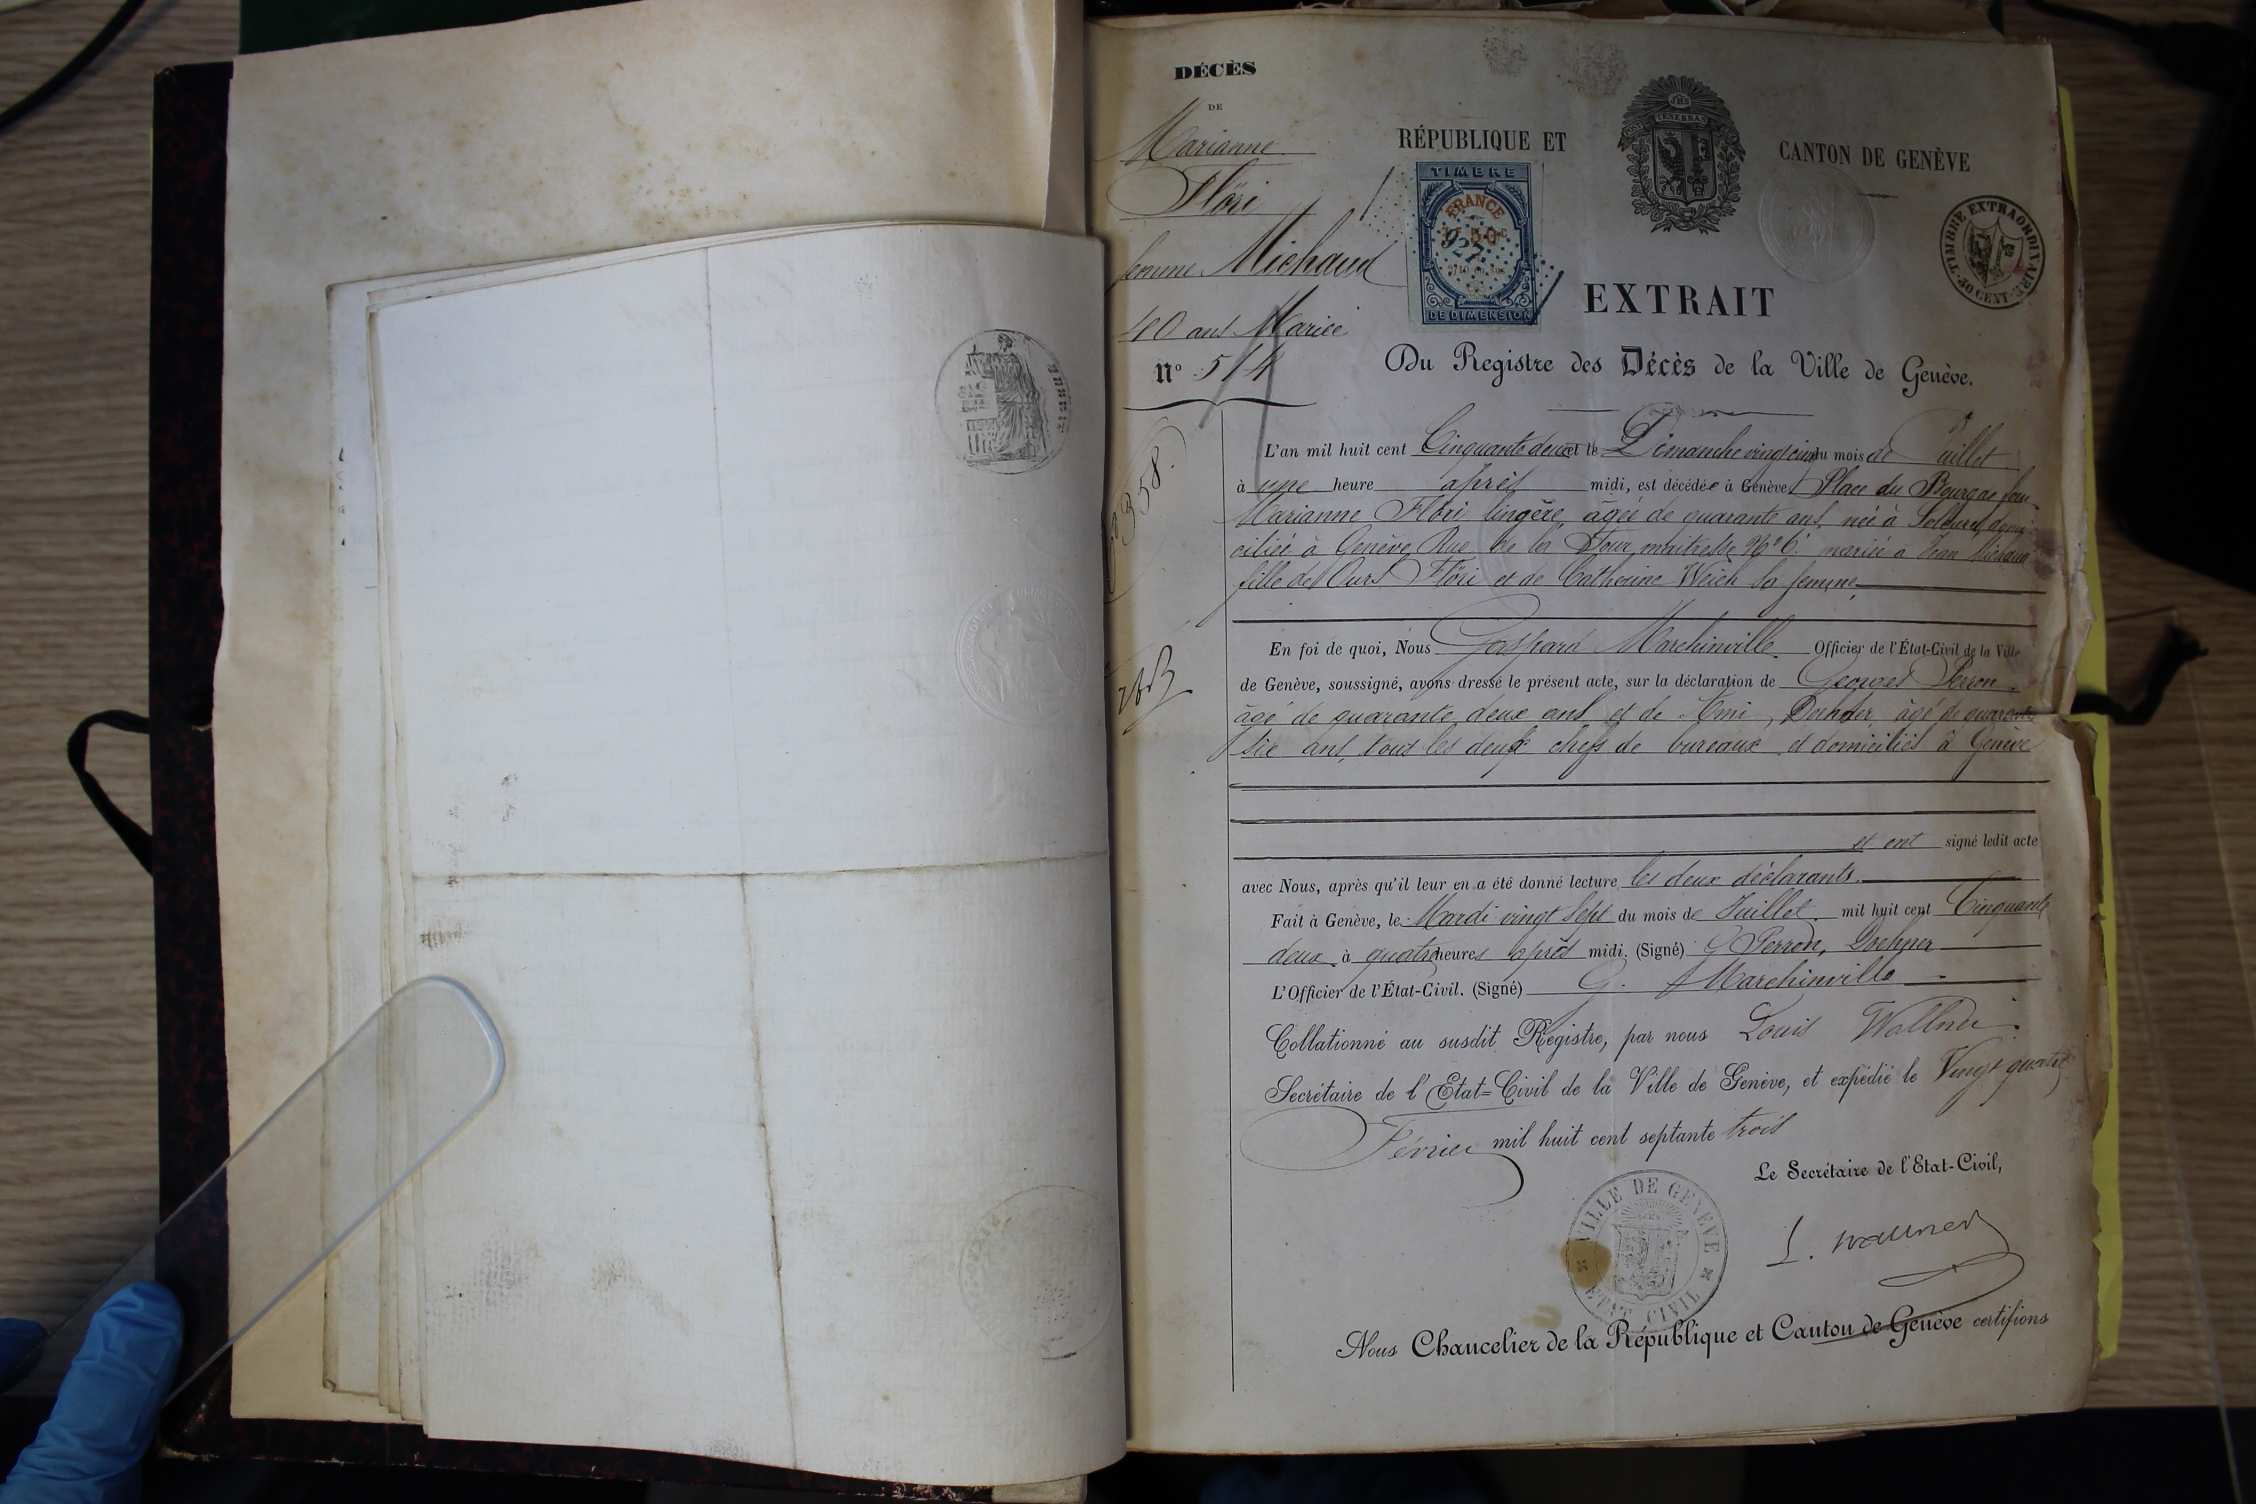 DÉCÈS
DE
Marianne
Flöri
femme Michaud
40 ans Mariée
N° 514
RÉPUBLIQUE ET
CANTON DE GENÈVE
JHS
TENEBRAS
TIMBRE
FRANCE
50c
927
DE DIMENSION
TIMBRE EXTRAORDINAIRE
EXTRAIT
Du Registre des Décès de la Ville de Genève.
L'an mil huit cent Cinquante deux et le Dimanche vingt cinq du mois de Juillet
à une heure après midi, est décédée à Genève, Place du Bourg de four
Marianne Flöri lingère, âgée de quarante ans, née à Soleure, domi-
ciliée à Genève, Rue de la Tour maitresse N° 6. mariée à Jean Michaud
fille de Ours Flöri et de Catherine Weich sa femme
358.
En foi de quoi, Nous Gaspard Marchinville Officier de l'État-Civil de la Ville
de Genève, soussigné, avons dressé le présent acte, sur la déclaration de Georges Perron
âgé de quarante deux ans et de Ami Doehner, âgé de quarante
six ans, tous les deux chefs de bureaux et domiciliés à Genève
et ont signé ledit acte
avec Nous, après qu'il leur en a été donné lecture les deux déclarants.
Fait à Genève, le Mardi vingt sept du mois de Juillet mil huit cent Cinquante
deux à quatre heures après midi. (Signé) G Perron, Doehner
L'Officier de l'État-Civil. (Signé) G. Marchinville
Collationné au susdit Registre, par nous Louis Wallner
Secrétaire de l'Etat=Civil de la Ville de Genève, et expédié le Vingt quatre
Février mil huit cent septante trois
Le Secrétaire de l'Etat-Civil,
L. Wallner
VILLE DE GENÈVE
ETAT CIVIL
Nous Chancelier de la République et Canton de Genève certifions